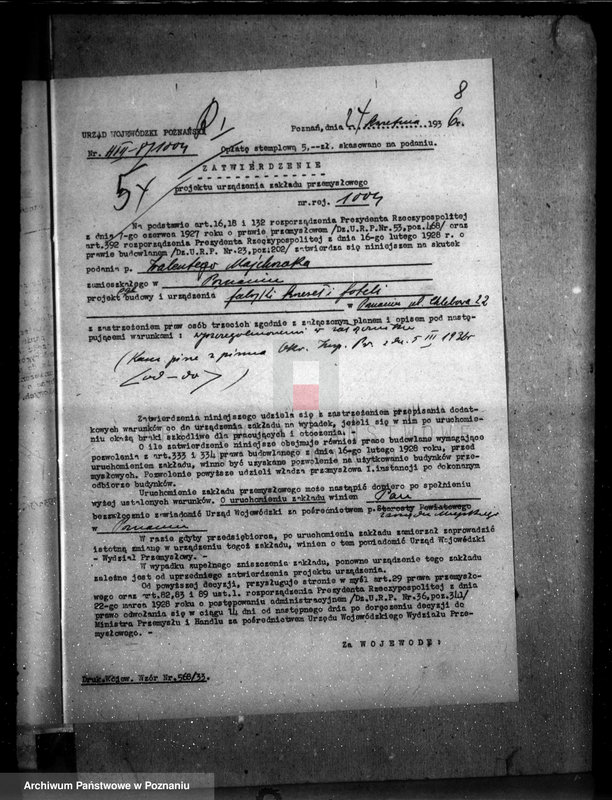 8
URZĄD WOJEWÓDZKI POZNAŃSKI
Poznań, dnia 24 kwietnia 1936 r.
Nr.
Opłatę stemplową 5,--zł. skasowano na podaniu.
ZATWIERDZENIE
54
projektu urządzenia zakładu przemysłowego
nr.rej. 1004
Na podstawie art.16,18 i 132 rozporządzenia Prezydenta Rzeczypospolitej
z dnia 7-go czerwca 1927 roku o prawie przemysłowem /Dz.U.R.P.Nr.53,poz.468/ oraz
art.392 rozporządzenia Prezydenta Rzeczypospolitej z dnia 16-go lutego 1928 r. o
prawie budowlanem /Dz.U.R.P. Nr.23,poz.202/ zatwierdza się niniejszem na skutek
podania p. Walentego
zamieszkałego w Poznaniu
projekt budowy i urządzenia fabryki krzeseł i foteli
w Poznaniu ul. Chlebowa 22
z zastrzeżeniem praw osób trzecich zgodnie z załączonym planem i opisem pod nastę-
pującemi warunkami: wyszczególnionemi w załączniku
( z pisma Okr. Insp. Pr. z dn. 5 III 1936r
<od – do> )
Zatwierdzenia niniejszego udziela się z zastrzeżeniem przepisania dodat-
kowych warunków co do urządzenia zakładu na wypadek, jeżeli się w nim po uruchomie-
niu okażą braki szkodliwe dla pracujących i otoczenia. -
O ile zatwierdzenie niniejsze obejmuje również prace budowlane wymagające
pozwolenia z art.333 i 334 prawa budowlanego z dnia 16-go lutego 1928 roku, przed
uruchomieniem zakładu, winno być uzyskane pozwolenie na użytkowanie budynków prze-
mysłowych. Pozwolenie powyższe udzieli władza przemysłowa I.instancji po dokonanym
odbiorze budynków.
Uruchomienie zakładu przemysłowego może nastąpić dopiero po spełnieniu
wyżej ustalonych warunków. O uruchomieniu zakładu winien Pan
bezzwłocznie zawiadomić Urząd Wojewódzki za pośrednictwem p. Starosty Powiatowego
Zarządu Miejskiego
w Poznaniu
W razie gdyby przedsiębiorca, po uruchomieniu zakładu zamierzał zaprowadzić
istotną zmianę w urządzeniu tegoż zakładu, winien o tem powiadomić Urząd Wojewódzki
- Wydział Przemysłowy. -
W wypadku zupełnego zniszczenia zakładu, ponowne urządzenie tego zakładu
zależne jest od uprzedniego zatwierdzenia projektu urządzenia.
Od powyższej decyzji, przysługuje stronie w myśl art.29 prawa przemysło-
wego oraz art.82,83 i 89 ust.1. rozporządzenia Prezydenta Rzeczypospolitej z dnia
22-go marca 1928 roku o postępowaniu administracyjnem /Dz.U.R.P. Nr.36,poz.341/
prawo odwołania się w ciągu 14 dni od następnego dnia po doręczeniu decyzji do
Ministra Przemysłu i Handlu za pośrednictwem Urzędu Wojewódzkiego Wydziału Prze-
mysłowego. -
Za WOJEWODĘ:
Druk.Wojew. Wzór Nr.568/33.
Archiwum Państwowe w Poznaniu